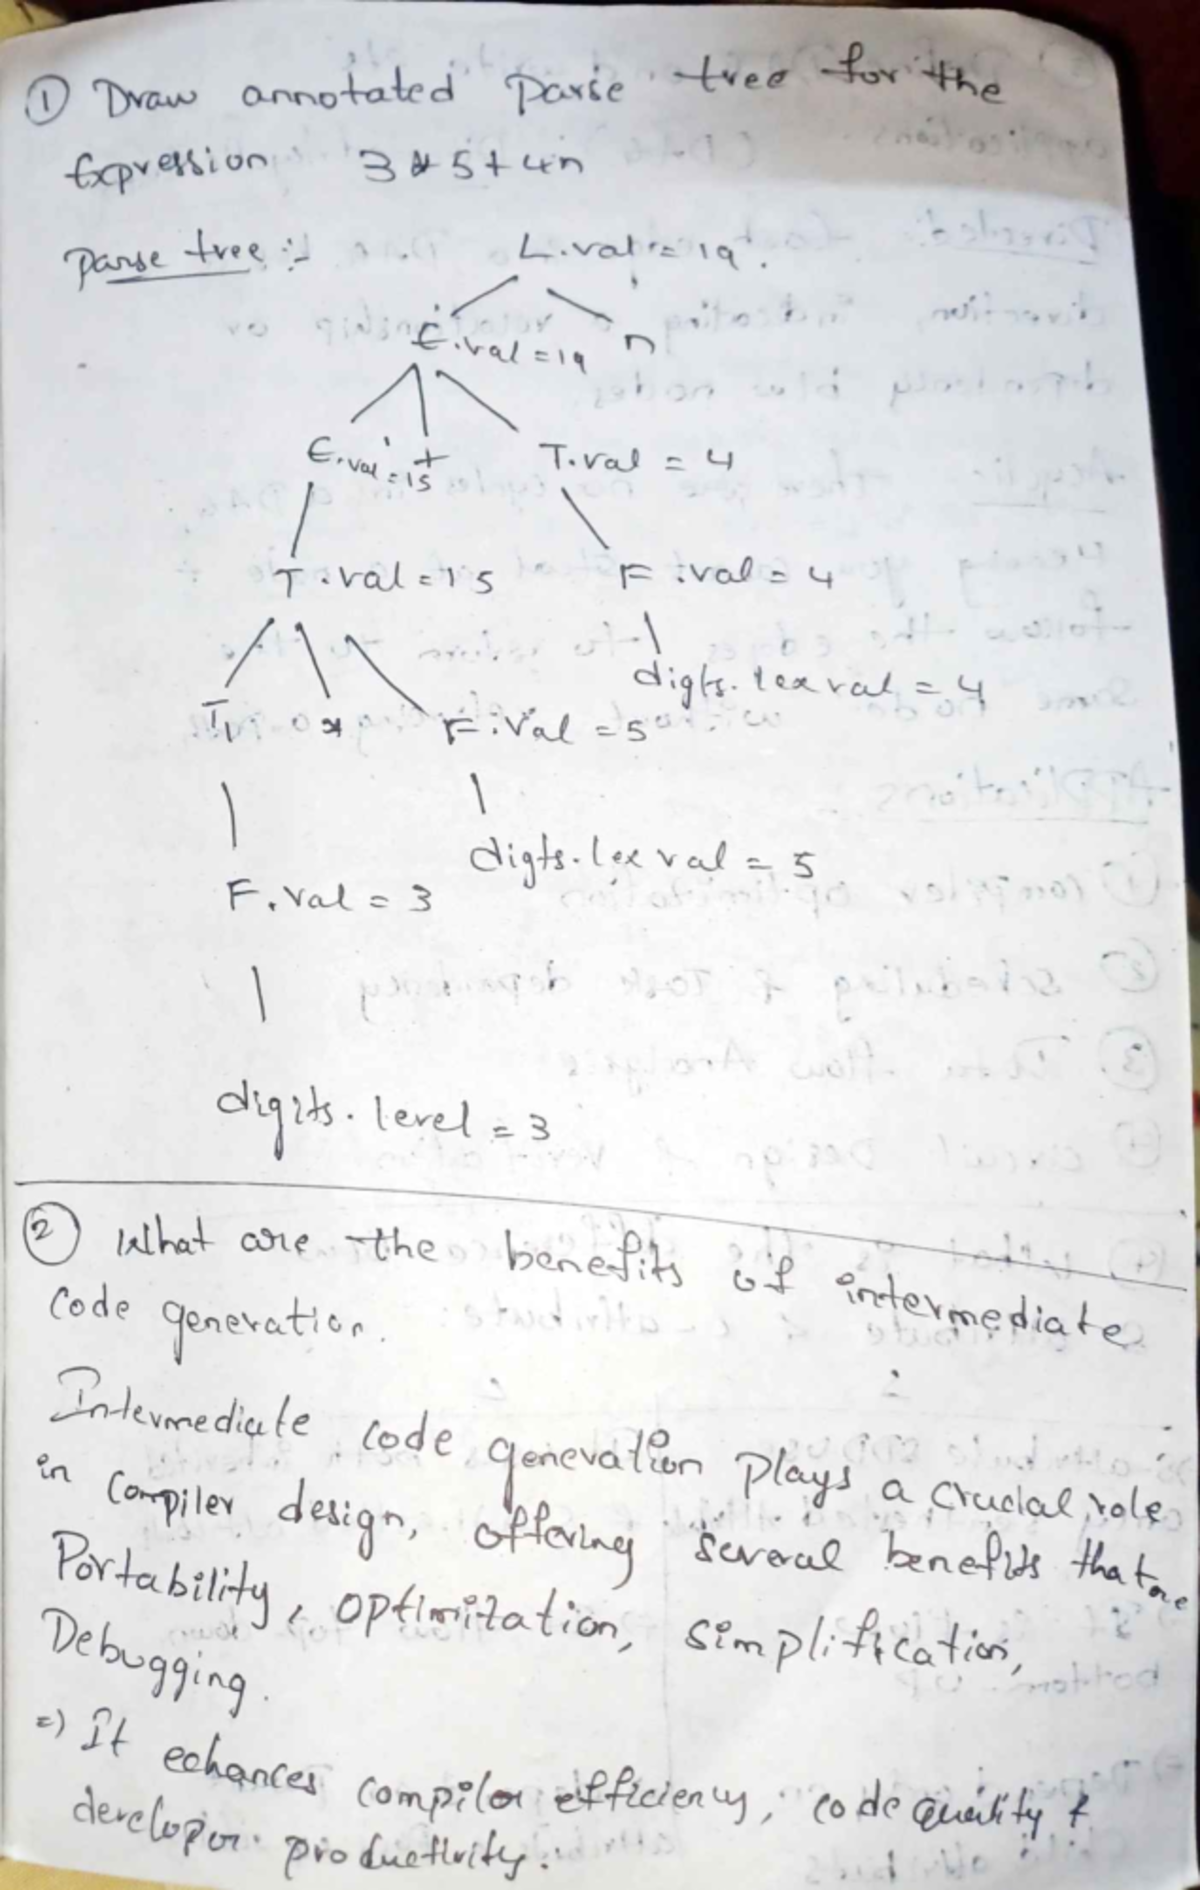 ① Draw annotated Parse tree for the
Expression 3 * 5 + 4n
Parse tree :-
L.val = 19.
E.val = 19 n
E.val = 15 + T.val = 4
T.val = 15 F.val = 4
digts.lex val = 4
T₁ * F.val = 5
digts.lex val = 5
F.val = 3
digits.level = 3
② What are the benefits of intermediate
code generation.
Intermediate code generation plays a crucial role
in compiler design, offering several benefits that are
Portability, optimization, simplification,
Debugging.
=) It echances compilor efficiency, code quality &
developor productivity.